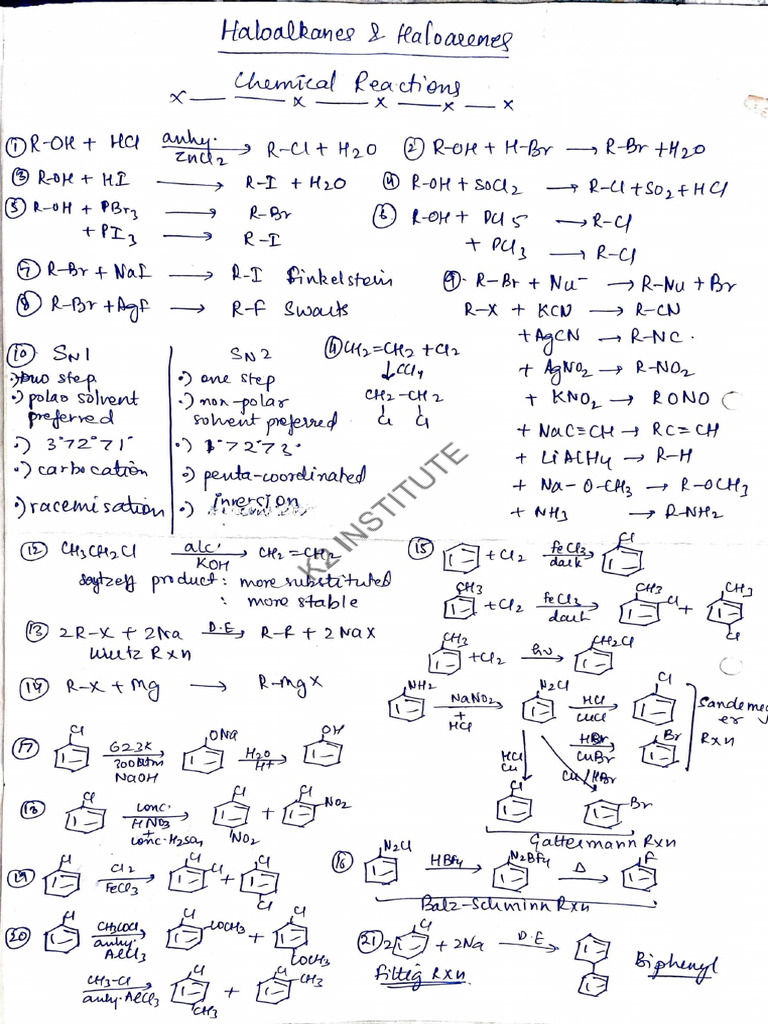 Haloalkanes & Haloarenes
Chemical Reactions
x — — x — x — x — x
① R-OH + HCl anhy. ZnCl2 → R-Cl + H2O
② R-OH + H-Br → R-Br + H2O
③ R-OH + HI → R-I + H2O
④ R-OH + SOCl2 → R-Cl + SO2 + HCl
⑤ R-OH + PBr3 → R-Br
+ PI3 → R-I
⑥ R-OH + PCl5 → R-Cl
+ PCl3 → R-Cl
⑦ R-Br + NaI → R-I Finkelstein
⑧ R-Br + AgF → R-F Swarts
⑨ R-Br + Nu⁻ → R-Nu + Br
R-X + KCN → R-CN
+ AgCN → R-NC.
+ AgNO2 → R-NO2
+ KNO2 → RONO
+ NaC≡CH → RC≡CH
+ LiAlH4 → R-H
+ Na-O-CH3 → R-OCH3
+ NH3 → R-NH2
⑩ SN1
•) two step
•) polar solvent
preferred
•) 3°>2°>1°
•) carbocation
•) racemisation
SN2
•) one step
•) non-polar
solvent preferred
•) 1°>2°>3°
•) penta-coordinated
•) inversion
⑪ CH2=CH2 + Cl2
↓ CCl4
CH2-CH2
Cl Cl
⑫ CH3CH2Cl alc. KOH → CH2=CH2
saytzeff product : more substituted
: more stable
⑬ 2R-X + 2Na D.E → R-R + 2NaX
Wurtz Rxn
⑭ R-X + Mg → R-MgX
⑮ + Cl2 FeCl3 dark → Cl
CH3 + Cl2 FeCl3 dark → CH3 Cl + CH3 Cl
CH3 + Cl2 hν → CH2Cl
NH2 NaNO2 + HCl → N2Cl HCl CuCl → Cl
HBr CuBr → Br
Sandemeyer
Rxn
HCl Cu Cu/HBr
Cl Br
Gattermann Rxn
⑯ N2Cl HBF4 → N2BF4 Δ → F
Balz-Schminn Rxn
⑰ Cl 623K 300Atm NaOH → ONa H2O H+ → OH
⑱ Cl conc. HNO3 + conc. H2SO4 → Cl NO2 + Cl NO2
⑲ Cl Cl2 FeCl3 → Cl Cl + Cl Cl
⑳ Cl CH3COCl anhy. AlCl3 → Cl COCH3 + Cl COCH3
CH3-Cl anhy. AlCl3 → Cl CH3 + Cl CH3
㉑ 2 Cl + 2Na D.E → Biphenyl
Fittig Rxn.
K2 INSTITUTE